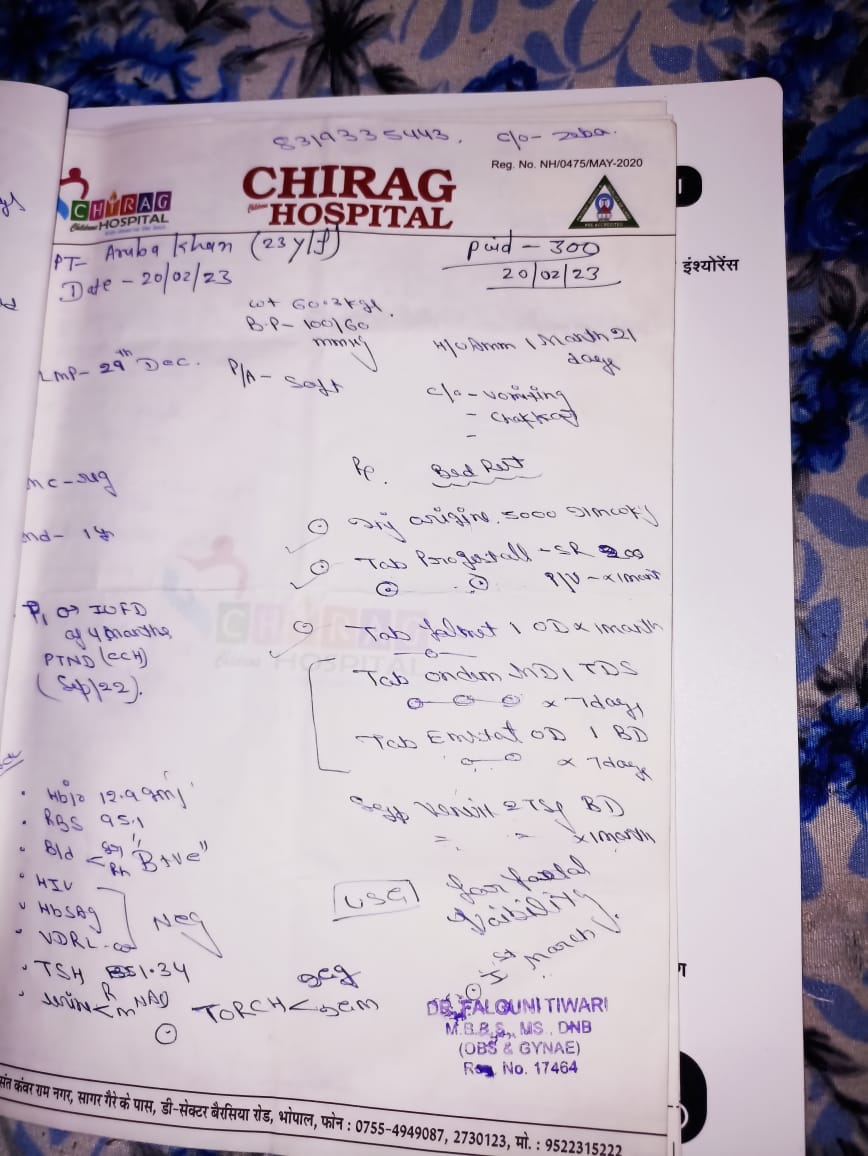 8319335443. c/o - Zeba.
Reg. No. NH/0475/MAY-2020
CHIRAG
HOSPITAL
CHIRAG
HOSPITAL
PT- Aruba Khan (23 y/f)
Paid - 300
Date - 20/02/23
20/02/23
इंश्योरेंस
wt 60.3 kg
B.P- 100/60
mmHg
H/O Amm 1 Month 21
days
LMP- 29th Dec.
P/A- Soft
c/o - vomiting
- chakkar
Rx.
Bed Rest
mc - reg
Inj 5000
md- 1 yr
Tab SR 200
P/V - x 1 month
P1 → IUFD
of 4 months
PTND (CCH)
(Sep/22).
Tab 1 OD x 1 month
Tab ondem MD 1 TDS
x 7 days
Tab OD 1 BD
x 7 days
Hb% 12.9 gm
RBS 95.1
Bld < gr Rh "B+ve"
HIV
HbSAg
VDRL
Neg
TSH 1.34
urine < R M NAD
Syp 2 TSF BD
x 1 month
USG
for foetal
Vaibility
1st March
TORCH < IgG IgM
DR. FALGUNI TIWARI
M.B.B.S., MS., DNB
(OBS & GYNAE)
Reg. No. 17464
संत कंवर राम नगर, सागर गैरे के पास, डी-सेक्टर बैरसिया रोड, भोपाल, फोन : 0755-4949087, 2730123, मो. : 9522315222